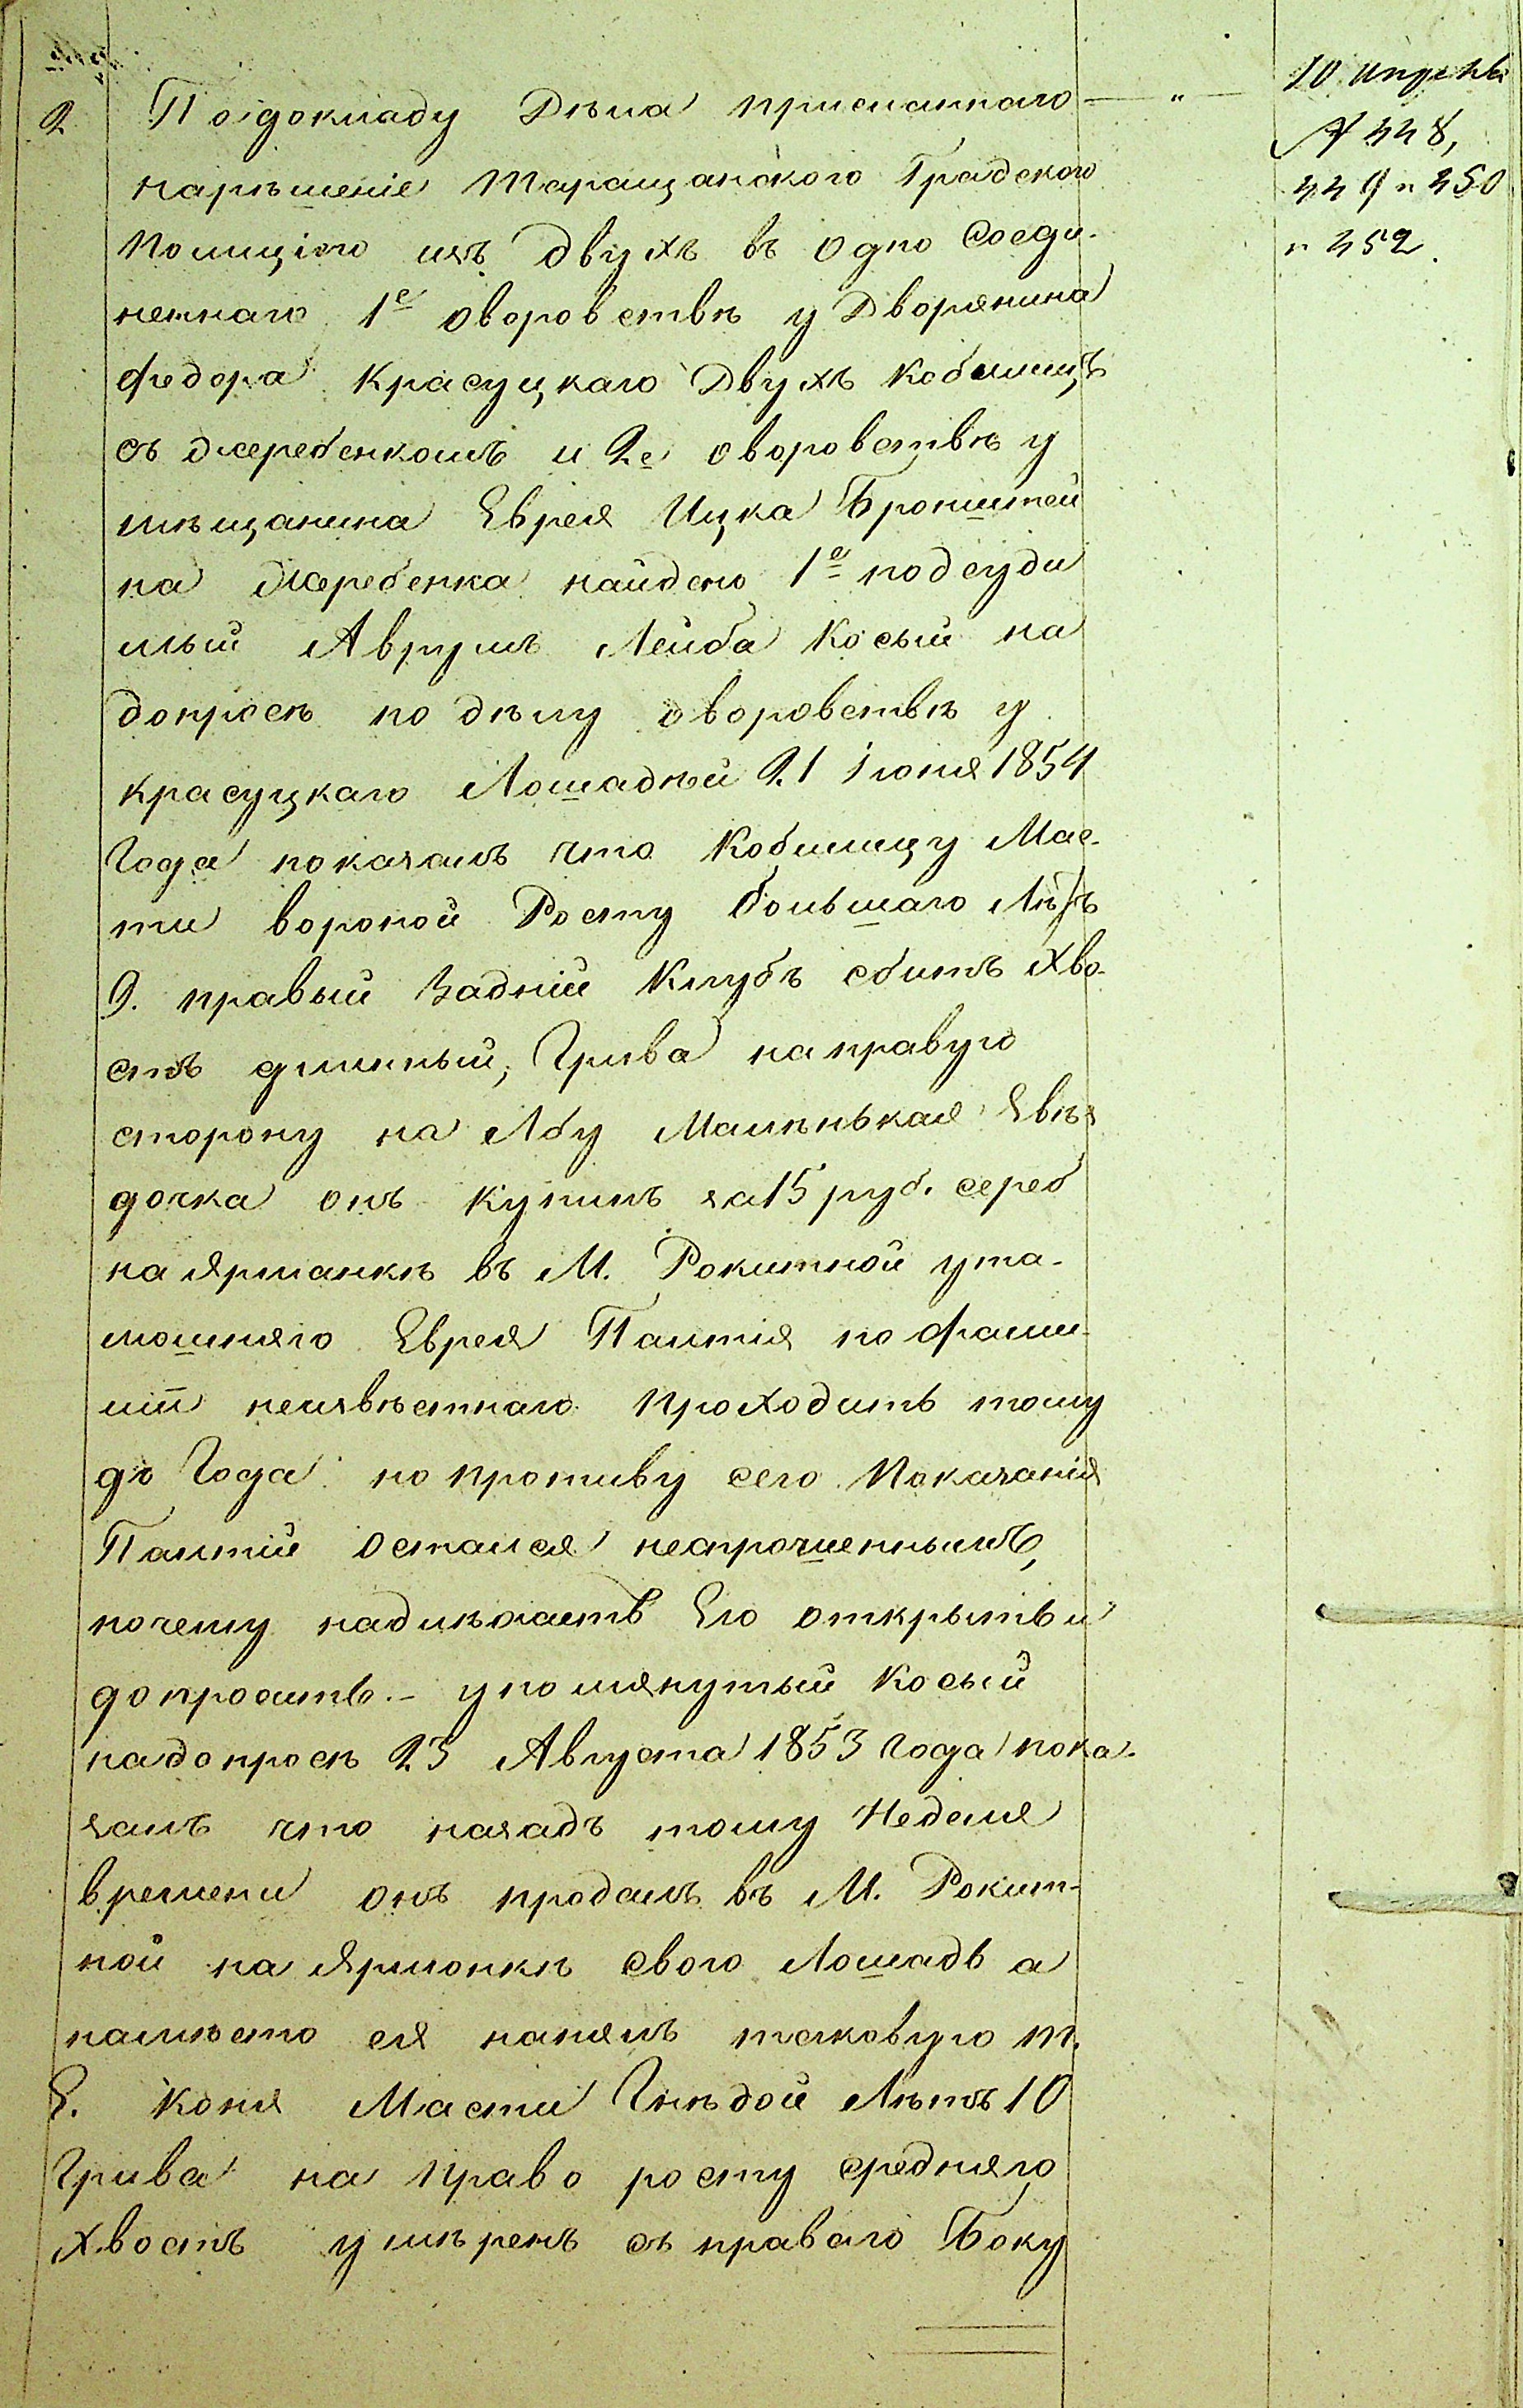 2
По докладу Дѣла присланнаго — " —
нарѣшеніе Таращанского Градского
Полиціею изъ двухъ въ одно Соеди-
неннаго 1е оворовствѣ у Дворянина
Федора Красуцкаго Двухъ Кобылицъ
съ жеребенкомъ и 2е оворовствѣ у
мѣщанина Еврея Ицка Бронштей
на жеребенка найдено 1е подсуди
мый Аврумъ Лейба Косый на
допросѣ по дѣлу оворовствѣ у
Красуцкаго Лошадѣй 21 Іюня 1854
Года показалъ что Кобылицу Мас-
ти вороной Росту большаго Лѣтъ
9. правый Задній Клубъ сбитъ Хво-
стъ длинный, Грива направую
сторону на Лбу Малѣнькая Звѣз
дочка онъ Купилъ за 15 руб. сереб
на Ярманкѣ въ М. Рокитной ута-
мошняго Еврея Палтія по фами-
ліи неизвѣстнаго проходитъ тому
до Года но противу сего Показанія
Палтій остался неспрошеннымъ,
почему надлѣжитъ Его открыть и
допросить. – упомянутый Косый
надопросѣ 23 Августа 1853 Года пока-
залъ что назадъ тому Неделя
времени онъ продалъ въ М. Рокит-
ной на Ярмонкѣ свою Лошадь а
намѣсто ея нанялъ таковую т.
Е. Коня Масти Гнѣдой Лѣтъ 10
Грива на Право росту средняго
хвостъ умѣренъ съ праваго Боку
10 Апрѣля
№ 448,
449 и 450
и 452.